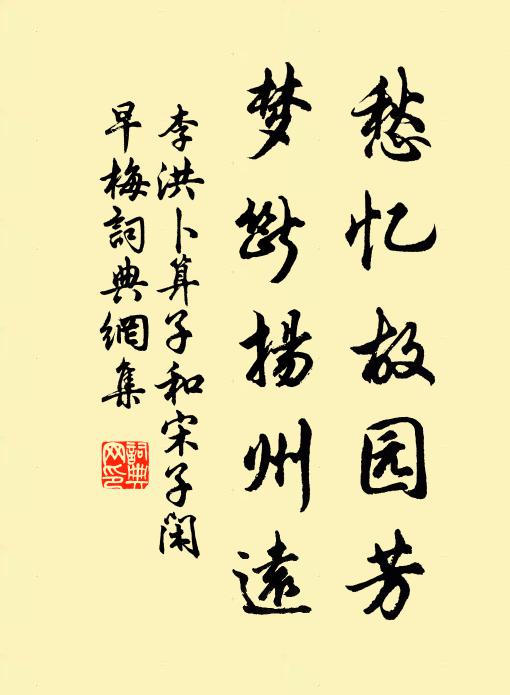 愁忆故园芳
梦斷揚州遠
李洪卜算子和宋子闲
早梅詞典網集
詞典
网印